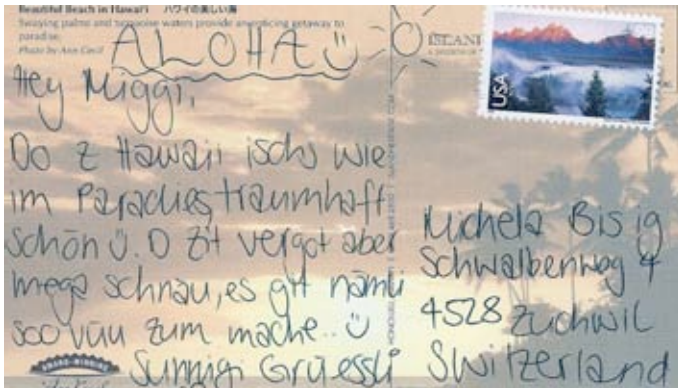 Beautiful Beach in Hawai'i ハワイの美しい海
Swaying palms and turquoise waters provide an enticing getaway to
paradise.
Photo by Ann Cecil
ALOHA
Hey Miggi,
Do z Hawaii ischs wie
im Paradies, traumhaft
schön. D Zit vergot aber
mega schnäu, es git nämli
soo vüu zum mache..
Sunnigi Grüessli
ISLAND
USA
Michela Bisig
Schwalbenweg 4
4528 Zuchwil
Switzerland